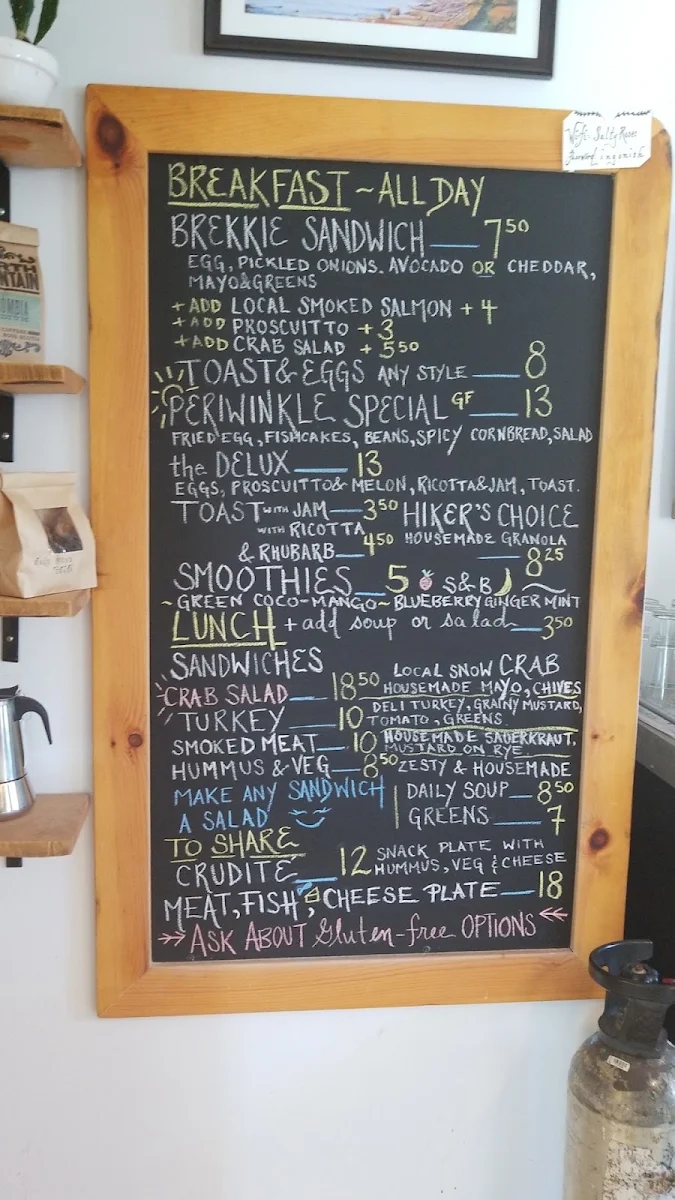 Wifi: SaltyRoses
password: ingonish
BREAKFAST ~ ALL DAY
BREKKIE SANDWICH 7 50
EGG, PICKLED ONIONS. AVOCADO OR CHEDDAR,
MAYO&GREENS
+ ADD LOCAL SMOKED SALMON + 4
+ ADD PROSCUITTO + 3
+ ADD CRAB SALAD + 5 50
TOAST & EGGS ANY STYLE 8
PERIWINKLE SPECIAL GF 13
FRIED EGG, FISHCAKES, BEANS, SPICY CORNBREAD, SALAD
the DELUX 13
EGGS, PROSCUITTO & MELON, RICOTTA & JAM, TOAST.
TOAST WITH JAM 3 50
WITH RICOTTA
& RHUBARB 4 50
HIKER'S CHOICE
HOUSEMADE GRANOLA
8 25
SMOOTHIES 5 S&B ~
~ GREEN COCO-MANGO ~ BLUEBERRY GINGER MINT
LUNCH + add soup or salad 3 50
SANDWICHES
CRAB SALAD 18 50 LOCAL SNOW CRAB
HOUSEMADE MAYO, CHIVES
TURKEY 10 DELI TURKEY, GRAINY MUSTARD,
TOMATO, GREENS.
SMOKED MEAT 10 HOUSEMADE SAUERKRAUT,
MUSTARD ON RYE
HUMMUS & VEG 8 50 ZESTY & HOUSEMADE
MAKE ANY SANDWICH
A SALAD
DAILY SOUP 8 50
GREENS 7
TO SHARE
CRUDITE 12 SNACK PLATE WITH
HUMMUS, VEG & CHEESE
MEAT, FISH, CHEESE PLATE 18
ASK ABOUT Gluten-free OPTIONS